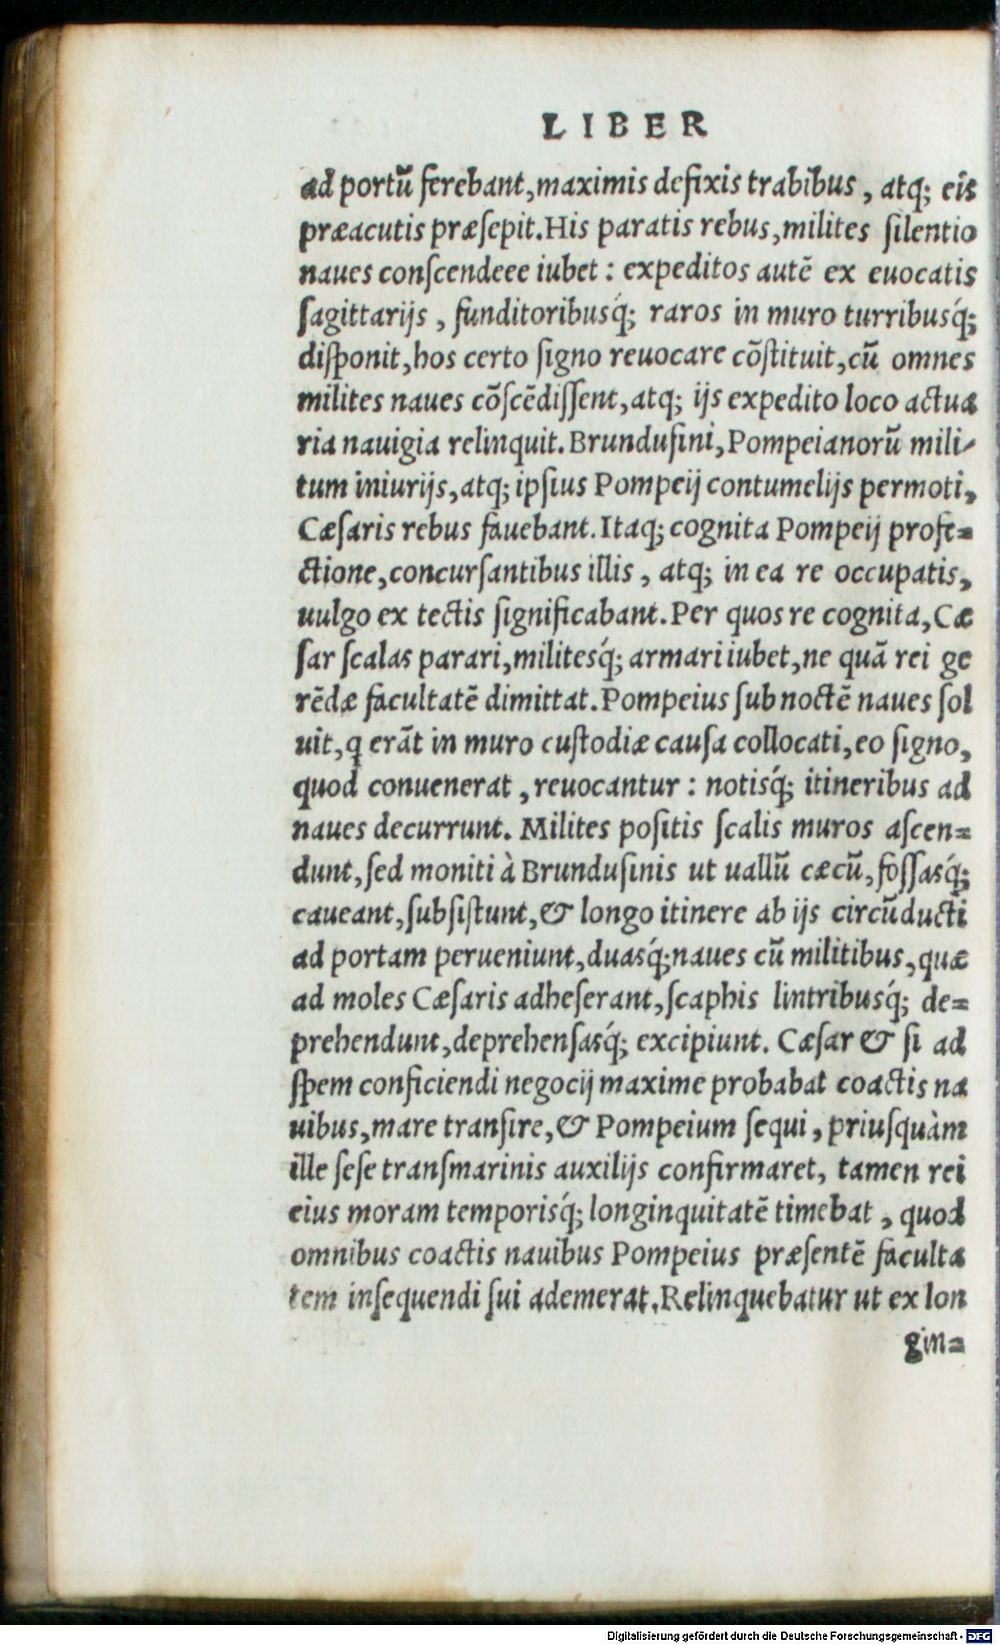 LIBER
ad portũ ferebant, maximis defixis trabibus, atq; eis
præacutis præſepit. His paratis rebus, milites ſilentio
naues conſcendeee iubet: expeditos autẽ ex euocatis
ſagittarijs, funditoribusq́; raros in muro turribusq́;
diſponit, hos certo ſigno reuocare cõſtituit, cũ omnes
milites naues cõſcẽdiſſent, atq; ijs expedito loco actua
ria nauigia relinquit. Brunduſini, Pompeianorũ mili-
tum iniurijs, atq; ipſius Pompeij contumelijs permoti,
Cæſaris rebus fauebant. Itaq; cognita Pompeij profe=
ctione, concurſantibus illis, atq; in ea re occupatis,
uulgo ex tectis ſignificabant. Per quos re cognita, Cæ
ſar ſcalas parari, militesq́; armari iubet, ne quã rei ge
rẽdæ facultatẽ dimittat. Pompeius ſub noctẽ naues ſol
uit, q erãt in muro cuſtodiæ cauſa collocati, eo ſigno,
quod conuenerat, reuocantur: notisq́; itineribus ad
naues decurrunt. Milites poſitis ſcalis muros aſcen=
dunt, ſed moniti à Brunduſinis ut uallũ cæcũ, foſſasq́;
caueant, ſubſiſtunt, & longo itinere ab ijs circũducti
ad portam perueniunt, duasq́; naues cũ militibus, quæ
ad moles Cæſaris adheſerant, ſcaphis lintribusq́; de=
prehendunt, deprehenſasq́; excipiunt. Cæſar & ſi ad
ſpem conficiendi negocij maxime probabat coactis na
uibus, mare tranſire, & Pompeium ſequi, priuſquàm
ille ſeſe tranſmarinis auxilijs confirmaret, tamen rei
eius moram temporisq́; longinquitatẽ timebat, quod
omnibus coactis nauibus Pompeius præſentẽ faculta
tem inſequendi ſui ademerat. Relinquebatur ut ex lon
gin=
Digitalisierung gefördert durch die Deutsche Forschungsgemeinschaft - DFG